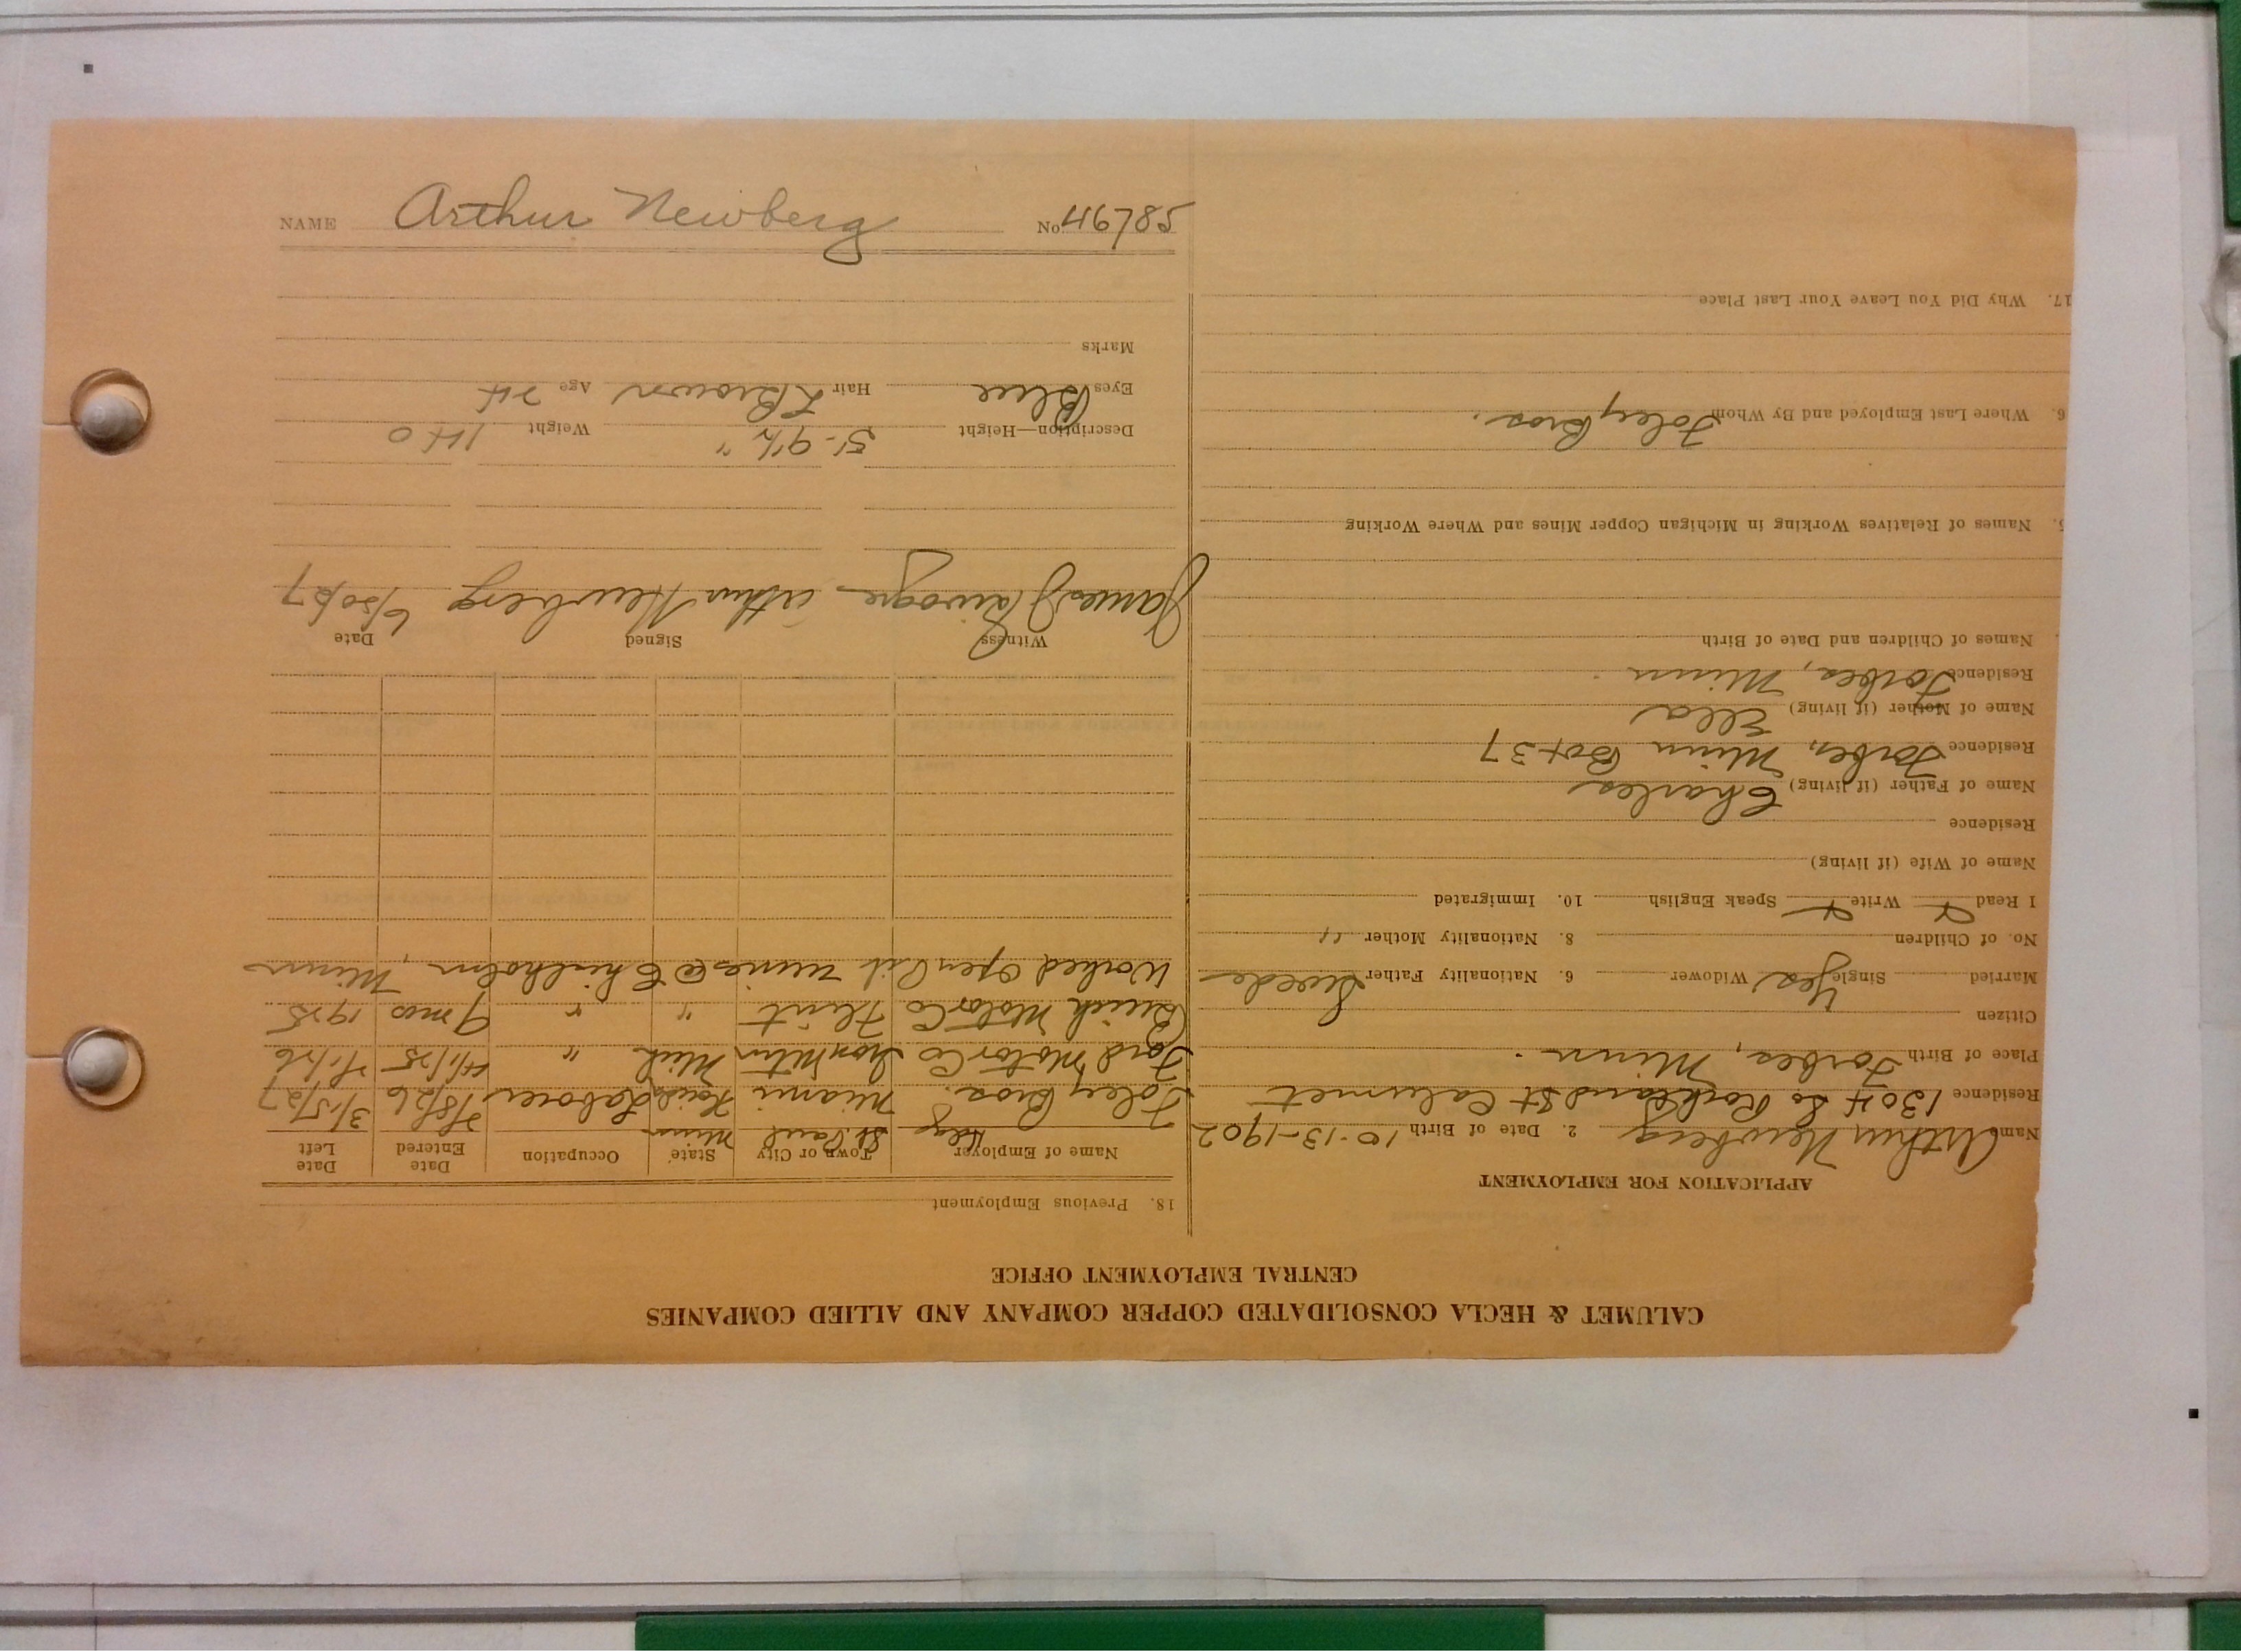 NAME Arthur Newberg No 46785
CALUMET & HECLA CONSOLIDATED COPPER COMPANY AND ALLIED COMPANIES
CENTRAL EMPLOYMENT OFFICE
APPLICATION FOR EMPLOYMENT
Name Arthur Newberg 2. Date of Birth 10-13-1902
Residence 1304 So Rockland St Calumet
Place of Birth Forbes, Minn.
Citizen
Married Single Yes Widower 6. Nationality Father Swede
No. of Children 8. Nationality Mother "
I Read x Write x Speak English 10. Immigrated
Name of Wife (if living)
Residence
Name of Father (if living) Charles
Residence Forbes, Minn Box 37
Name of Mother (if living) Ella
Residence Forbes, Minn
Names of Children and Date of Birth
5. Names of Relatives Working in Michigan Copper Mines and Where Working
6. Where Last Employed and By Whom Foley Bros.
17. Why Did You Leave Your Last Place
18. Previous Employment
Name of Employer Town or City State Occupation Date Entered Date Left
St. Paul Minn
Foley Bros. Miami Laborer 3/15/27
Ford Motor Co Iron Mtn Mich " 4/1/25 7/1/26
Buick Motor Co Flint " " 9 mos 1925
Worked open Pit mines @ Chisholm, Minn
Witness Signed Date
James Arthur Newberg 6/30/27
Description—Height 5'-9½" Weight 140
Eyes Blue Hair L Brown Age 24
Marks